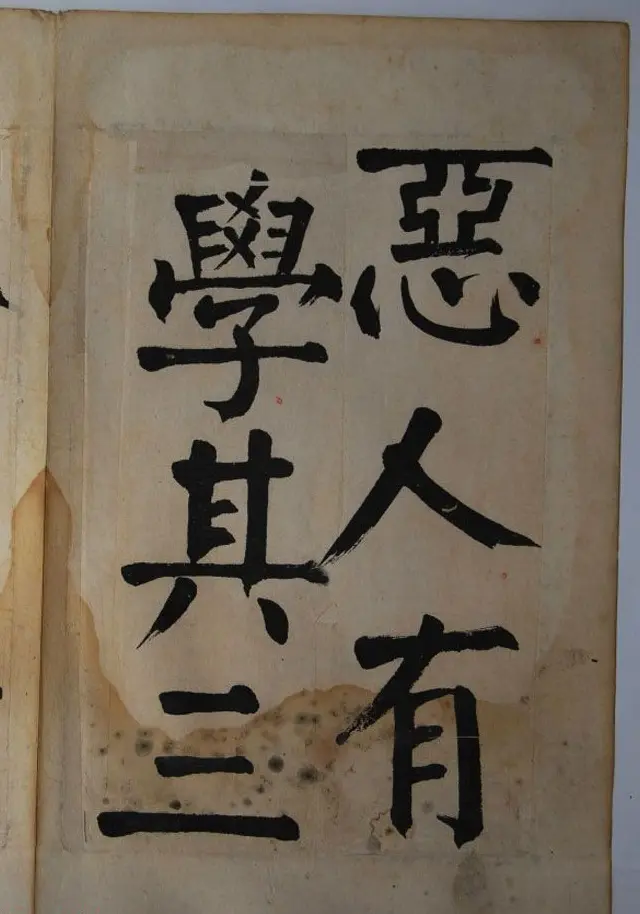 惡人有
學其三